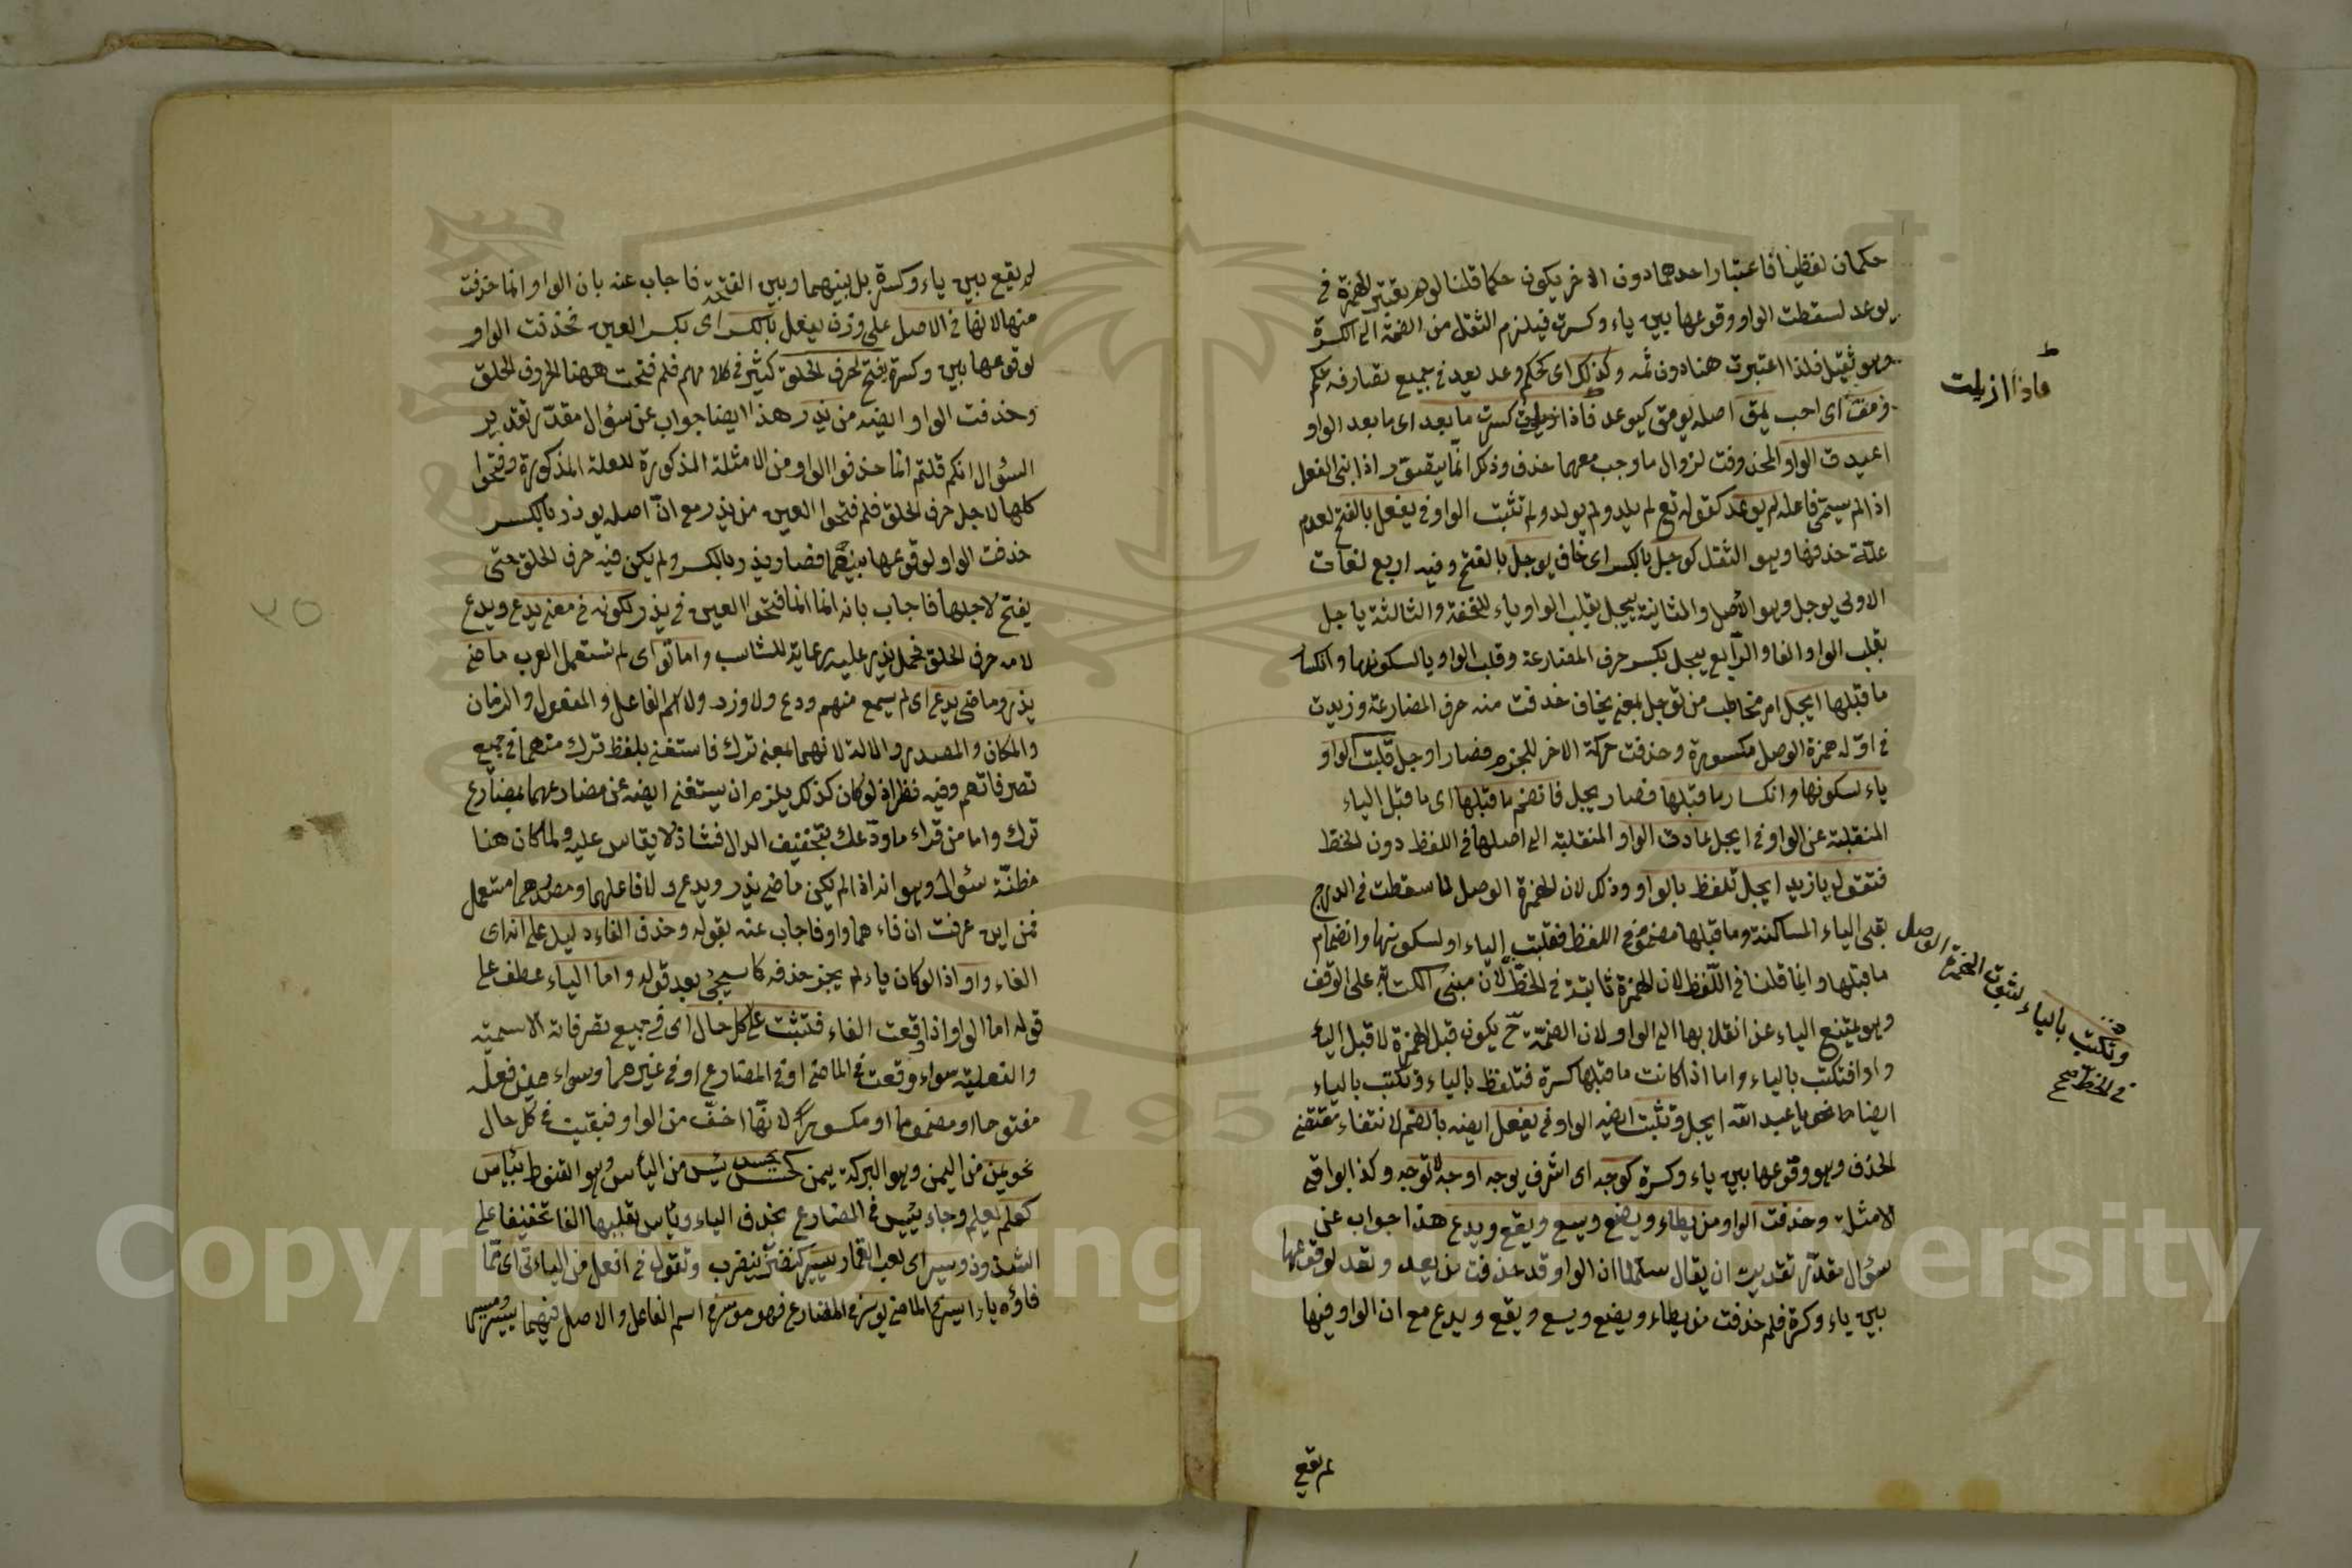 حكمان لفظيا فاعتبار احدهما دون الاخر يكون حكما قلنا لو لم يعتبر الهمزة في
يوعد لسقطت الواو وقوعها بين ياء وكسرة فيلزم الثقل من الضمة الى الكسرة
وهو ثقيل فلذا اعتبرت هنا دون ثمه وكذلك اى كحكم وعد يعد في جميع تصارفه حكم
ومق اى احب يمق اصله يومق كيوعد فاذا ازيلت كسرت ما بعد اى ما بعد الواو
فاذا ازيلت
اعيدت الواو المحذوفة لزوال ما وجب معها حذف وذلك انما يتحقق اذا بنى الفعل
اذا لم يسمى فاعله لم يوعد كقوله تع لم يلد ولم يولد ولم تثبت الواو في يفعل بالفتح لعدم
علة حذفها وهو الثقل كوجل بالكسر اى خاف يوجل بالفتح وفيه اربع لغات
الاولى يوجل وهو الاصل والثانية ييجل بقلب الواو ياء للخفة والثالثة ياجل
بقلب الواو الفا والرابع ييجل بكسر حرف المضارعة وقلب الواو يا لسكونها وانكسار
ما قبلها ايجل امر مخاطب من توجل بمعنى يخاف حذفت منه حرف المضارعة وزيدت
في اوله همزة الوصل مكسورة وحذفت حركة الاخر للجزم فصار اوجل قلبت الواو
ياء لسكونها وانكسار ما قبلها فصار يجل فانضم ما قبلها اى ما قبل الياء
المنقلبة عن الواو في ايجل عادت الواو المنقلبة الى اصلها في اللفظ دون الخط
فتقول يا زيد ايجل تلفظ بالواو وذلك لان الهمزة الوصل لما سقطت في الدرج
بقى الياء الساكنة وما قبلها مضموم في اللفظ فقلبت الياء او لسكونها وانضمام
ما قبلها وانما قلنا في اللفظ لان الهمزة ثابتة في الخط لان مبنى الكتابة على الوقف
وتكتب بالياء لثبوت الهمزة الوصل
في الخط صح
وهو يمتنع الياء عن انقلابها الى الواو ولان الضمة ح يكون قبل الهمزة لا قبل الياء
واوا فتكتب بالياء واما اذا كانت ما قبلها كسرة فتلفظ بالياء وتكتب بالياء
ايضا نحو يا عبد الله ايجل وتثبت ايضه الواو في يفعل ايضه بالضم لانتفاء مقتضى
الحذف وهو وقوعها بين ياء وكسرة كوجه اى اشرف يوجه اوجه لا توجه وكذا بواقى
الامثلة وحذفت الواو من يطاء ويضع ويسع ويقع ويدع هذا جواب عن
سؤال مقدر تقديره ان يقال سلمنا ان الواو قد حذفت من يعد وتعد لوقوعها
بين ياء وكسرة فلم حذفت من يطاء ويضع ويسع ويقع ويدع مع ان الواو فيها
لم تقع
لم يقع بين ياء وكسرة بل بينهما وبين الفتحة فاجاب عنه بان الواو انما حذفت
منها لانها في الاصل على وزن يفعل بالكسر اى بكسر العين فحذفت الواو
لوقوعها بين وكسرة يفتح لحرف الحلق كثير في كلامهم فلم فتحت ههنا لحروف الحلق
وحذفت الواو ايضه من يذر هذا ايضا جواب عن سؤال مقدر تقدير
السؤال انكم قلتم انما حذفوا الواو من الامثلة المذكورة للعلة المذكورة وفتحوا
كلها لاجل حرف الحلق فلم فتحوا العين من يذر مع ان اصله يوذر بالكسر
حذفت الواو لوقوعها بينهما فصار يذر بالكسر ولم يكن فيه حرف الحلق حتى
يفتح لاجلها فاجاب بانه انما انما فتحوا العين في يذر لكونه في معنى يدع ويدع
٢٥
لامه حرف الحلق فحمل يذر عليه رعاية للتناسب واماتوا اى لم تستعمل العرب ماضى
يذر وماضى يدع اى لم يسمع منهم ودع ولا وذر ولا اسم الفاعل والمفعول والزمان
والمكان والمصدر والالة لانهما بمعنى ترك فاستغنى بلفظ ترك منهما في جميع
تصرفاتهم وفيه نظر اذ لو كان كذلك يلزم ان يستغنى ايضه عن مضارعهما بمضارع
ترك واما من قراء ما ودعك بتخفيف الدال فشاذ لا يقاس عليه ولما كان هنا
مظنة سؤال وهو انه اذا لم يكن ماضى يذر ويدع ولا فاعلهما ومصدرهما مستعمل
فمن اين عرفت ان فاء هما واو فاجاب عنه بقوله وحذف الفاء دليل على انه اى
الفاء واو اذا لو كان ياء لم يجز حذفه كما سيجئ بعد قوله واما الياء عطف على
قوله اما الواو اذا وقعت الفاء فتثبت على كل حال اى في جميع تصرفاته الاسمية
والفعلية سواء وقعت في الماضى او في المضارع او في غيرهما وسواء عين فعله
مفتوحا او مضموما او مكسورا لانها اخف من الواو فبقيت في كل حال
نحو يمن من اليمن وهو البركة يمن كحسن يحسن يئس من اليأس وهو القنوط يئاس
كعلم يعلم وجاء يئيس في المضارع بحذف الياء وياس بقلبها الفا تخفيفا على
الشذوذ ويسر اى لعب القمار ييسر كنصر ينصر وتقول في افعل من الياءى اى مما
فاؤه ياء ايسر في الماضى يوسر في المضارع فهو موسر في اسم الفاعل والاصل فيهما ييسر وميسر